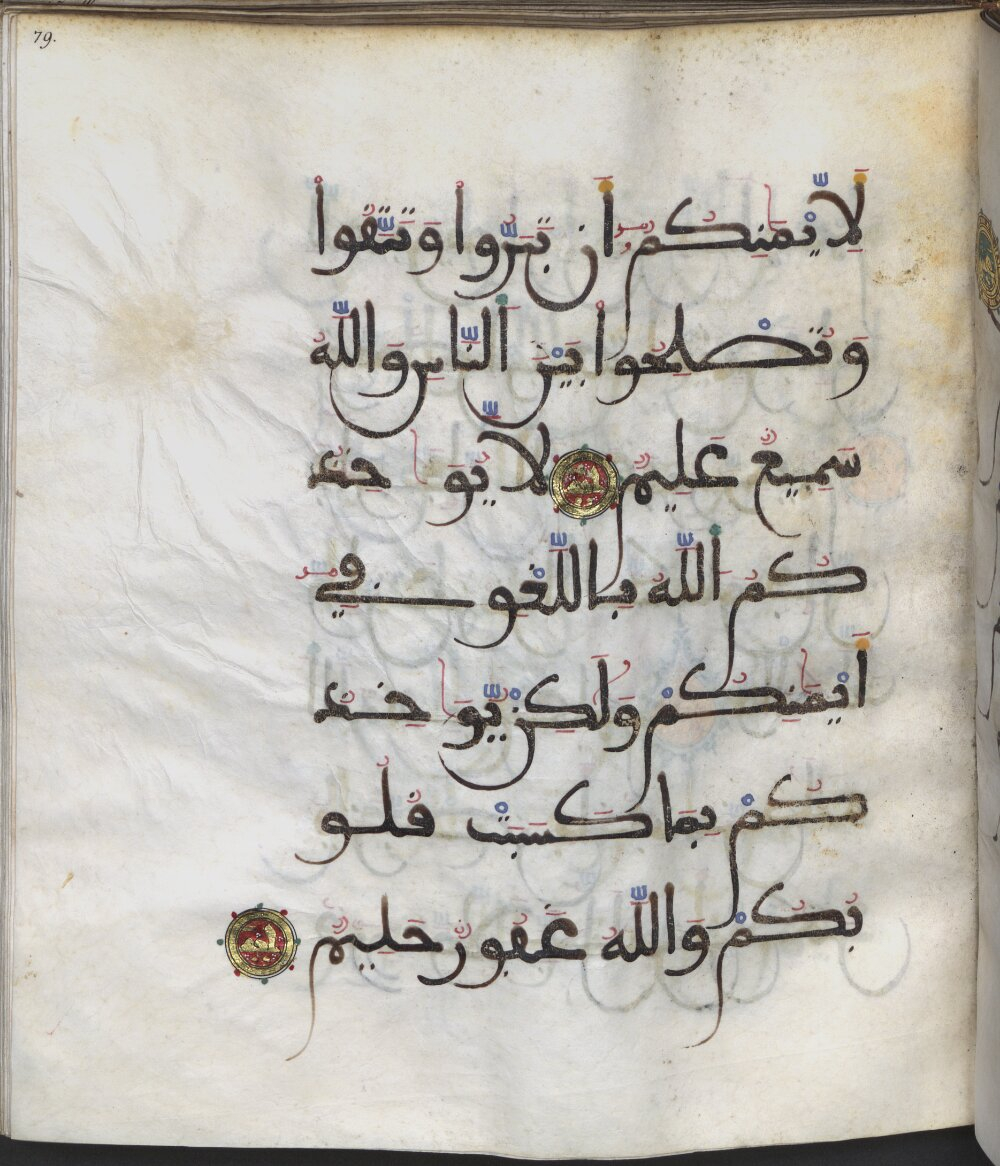 79.
لَّأَيْمَٰنِكُمْ أَن تَبَرُّواْ وَتَتَّقُواْ
وَتُصْلِحُواْ بَيْنَ اَ۬لنَّاسِ وَاللَّهُ
سَمِيعٌ عَلِيمٌ لَّا يُوَاخِذُ
كُمُ اُ۬للَّهُ بِاللَّغْوِ فِي
أَيْمَٰنِكُمْ وَلَٰكِنْ يُّوَاخِذُ
كُم بِمَا كَسَبَتْ قُلُو
بُكُمْ وَاللَّهُ غَفُورٌ حَلِيمٌ